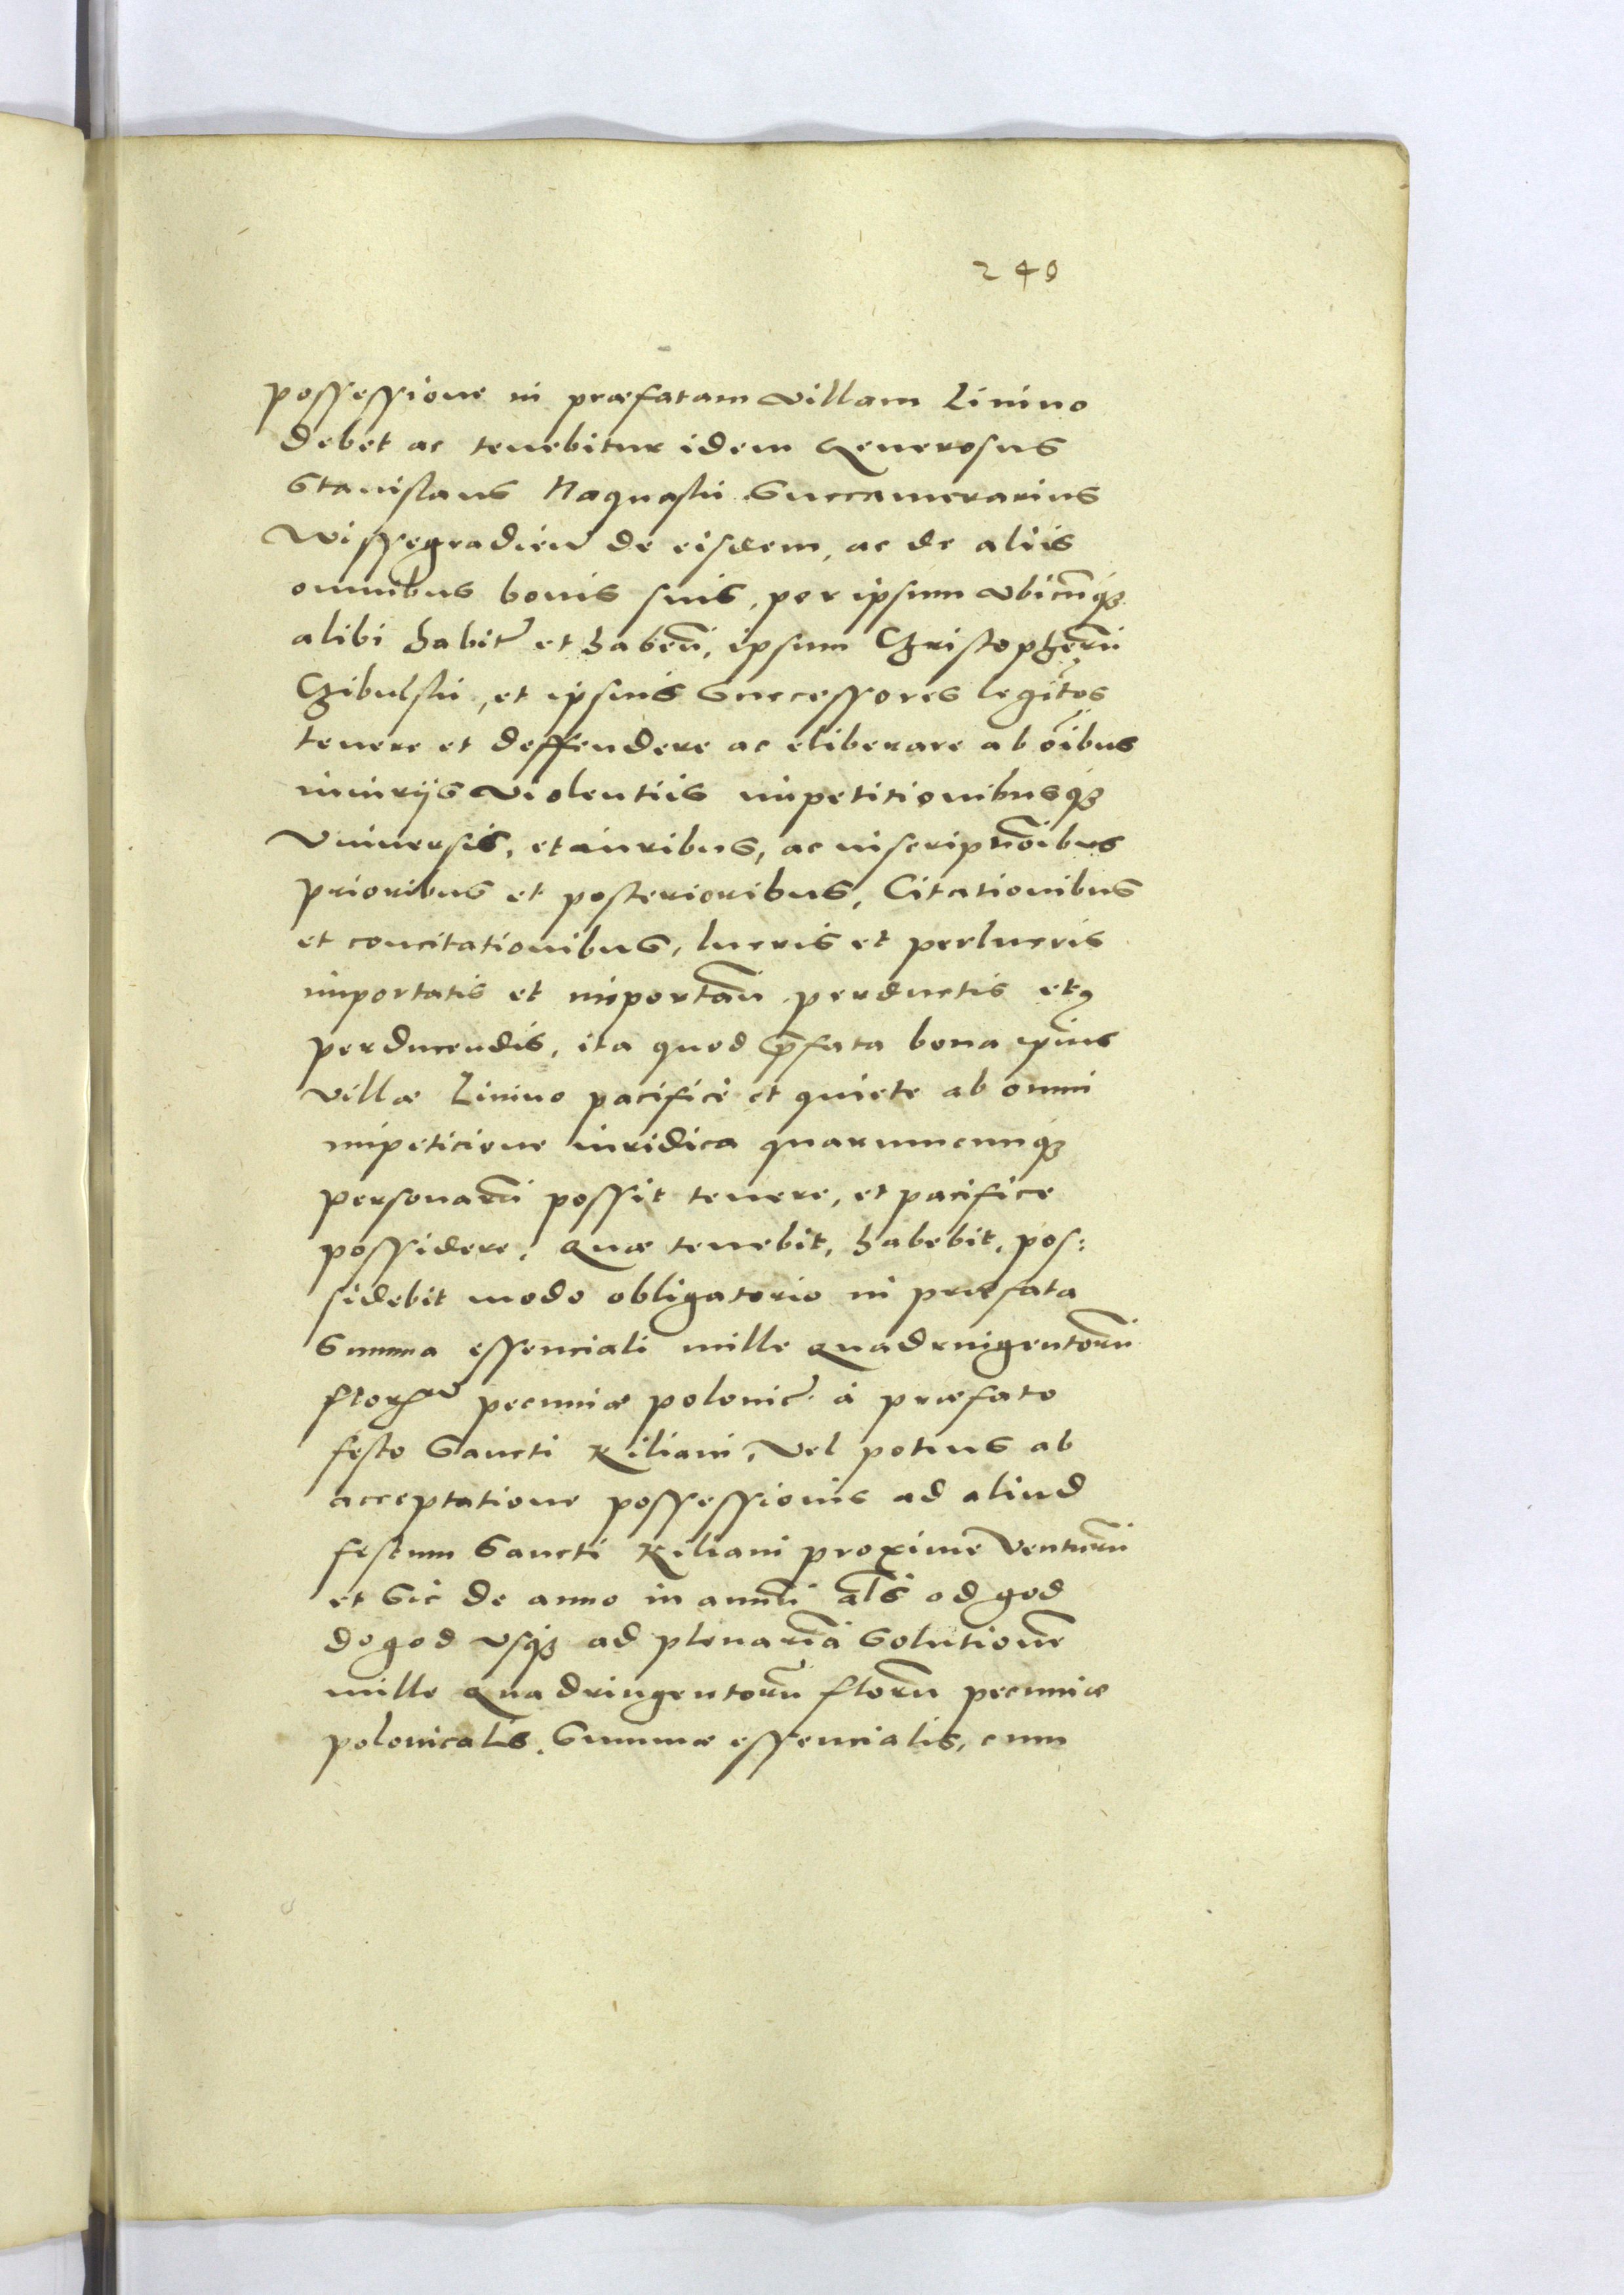 240
possessione in præfatam villam Linino
debet ac tenebitur idem Generosus
Stanislaus Noguaski Succamerarius
Wissegradień de eisdem, ac de aliis
omnibus bonis suis, per ipsum vbicūqȝ
alibi habit̃ et habeñ, ipsum Christopherū
Czibulski, et ipsius Successores legitos̃
tenere et deffendere ac eliberare ab oībus
iniurijs violentiis impetitionibusqȝ
Vniuersis, et iuribus, ac inscriptnōibus
prioribus et posterioribus, Citationibus
et concitationibus, lucris et perlucris
importatis et importañ perductis et
perducendis, ita quod p̄fata bona ipsius
villæ Linino pacifice et quiete ab omni
impeticione iuridica quarumcunqȝ
personarū possit tenere, et pacifice
possidere. Quæ tenebit, habebit, pos:
sidebit modo obligatorio in præfata
Summa essenciali mille quadringentorū
flor̃ pecuniæ polonic̃ à præfato
festo Sancti Kiliani, Vel potius ab
acceptatione possessionis ad aliud
festum Sancti Kiliani proxime Venturū
et Sic de anno in annū al̄s od god
do god vsqȝ ad plenariā Solutionē
mille Quadringentorū florū pecuniæ
polonicalis. Summæ essencialis, cum